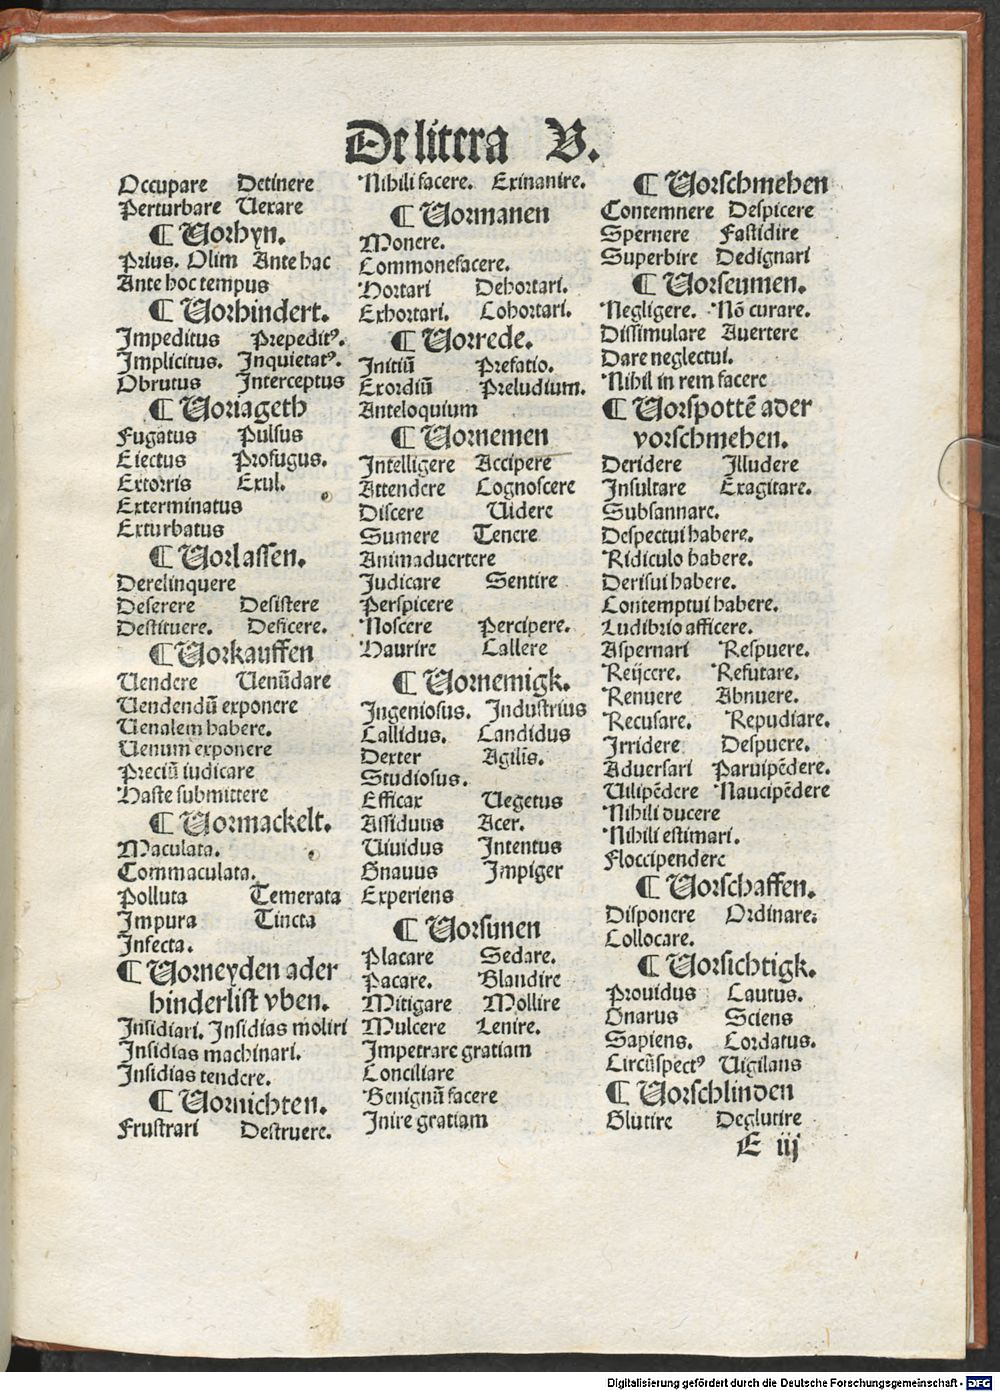 De litera V.
Occupare Detinere
Perturbare Uexare
¶ Uorhyn.
Prius. Olim Ante hac
Ante hoc tempus
¶ Uorhindert.
Impeditus Prepeditꝰ.
Implicitus. Inquietatꝰ.
Obrutus Interceptus
¶ Uoriageth
Fugatus Pulsus
Eiectus Profugus.
Extorris Exul.
Exterminatus
Exturbatus
¶ Uorlassen.
Derelinquere
Deserere Desistere
Destituere. Deficere.
¶ Uorkauffen
Uendere Uenūdare
Uendendū exponere
Uenalem habere.
Uenum exponere
Preciū iudicare
Haste submittere
¶ Uormackelt.
Maculata.
Commaculata.
Polluta Temerata
Impura Tincta
Infecta.
¶ Uorneyden ader
hinderlist vben.
Insidiari. Insidias moliri
Insidias machinari.
Insidias tendere.
¶ Uornichten.
Frustrari Destruere.
Nihili facere. Exinanire.
¶ Uormanen
Monere.
Commonefacere.
Hortari Dehortari.
Exhortari. Cohortari.
¶ Uorrede.
Initiū Prefatio.
Exordiū Preludium.
Anteloquium
¶ Uornemen
Intelligere Accipere
Attendere Cognoscere
Discere Uidere
Sumere Tenere
Animaduertere
Judicare Sentire
Perspicere
Noscere Percipere.
Haurire Callere
¶ Uornemigk.
Ingeniosus. Industrius
Callidus. Candidus
Dexter Agilis.
Studiosus.
Efficax Uegetus
Assiduus Acer.
Uiuidus Intentus
Gnauus Impiger
Experiens
¶ Uorsunen
Placare Sedare.
Pacare. Blandire
Mitigare Mollire
Mulcere Lenire.
Impetrare gratiam
Conciliare
Benignū facere
Inire gratiam
¶ Uorschmehen
Contemnere Despicere
Spernere Fastidire
Superbire Dedignari
¶ Uorseumen.
Negligere. Nō curare.
Dissimulare Auertere
Dare neglectui.
Nihil in rem facere
¶ Uorspottē ader
vorschmehen.
Deridere Illudere
Insultare Exagitare.
Subsannare.
Despectui habere.
Ridiculo habere.
Derisui habere.
Contemptui habere.
Ludibrio afficere.
Aspernari Respuere.
Reijcere. Refutare.
Renuere Abnuere.
Recusare. Repudiare.
Irridere Despuere.
Aduersari Paruipēdere.
Uilipēdere Naucipēdere
Nihili ducere
Nihili estimari.
Floccipendere
¶ Uorschaffen.
Disponere Ordinare:
Collocare.
¶ Uorsichtigk.
Prouidus Cautus.
Gnarus Sciens
Sapiens. Cordatus.
Circūspectꝰ Uigilans
¶ Uorschlinden
Glutire Deglutire
E iij
Digitalisierung gefördert durch die Deutsche Forschungsgemeinschaft - DFG